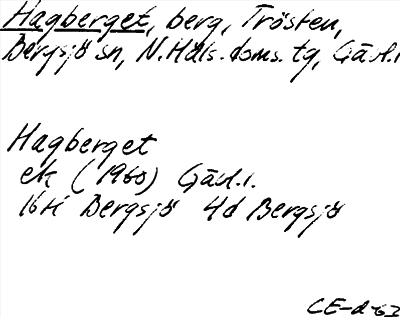 Hagberget, berg, Trösten,
Bergsjö sn, N.Häls.doms.tg, Gävl.l
Hagberget
ek (1960) Gävl.l.
16H Bergsjö 4d Bergsjö